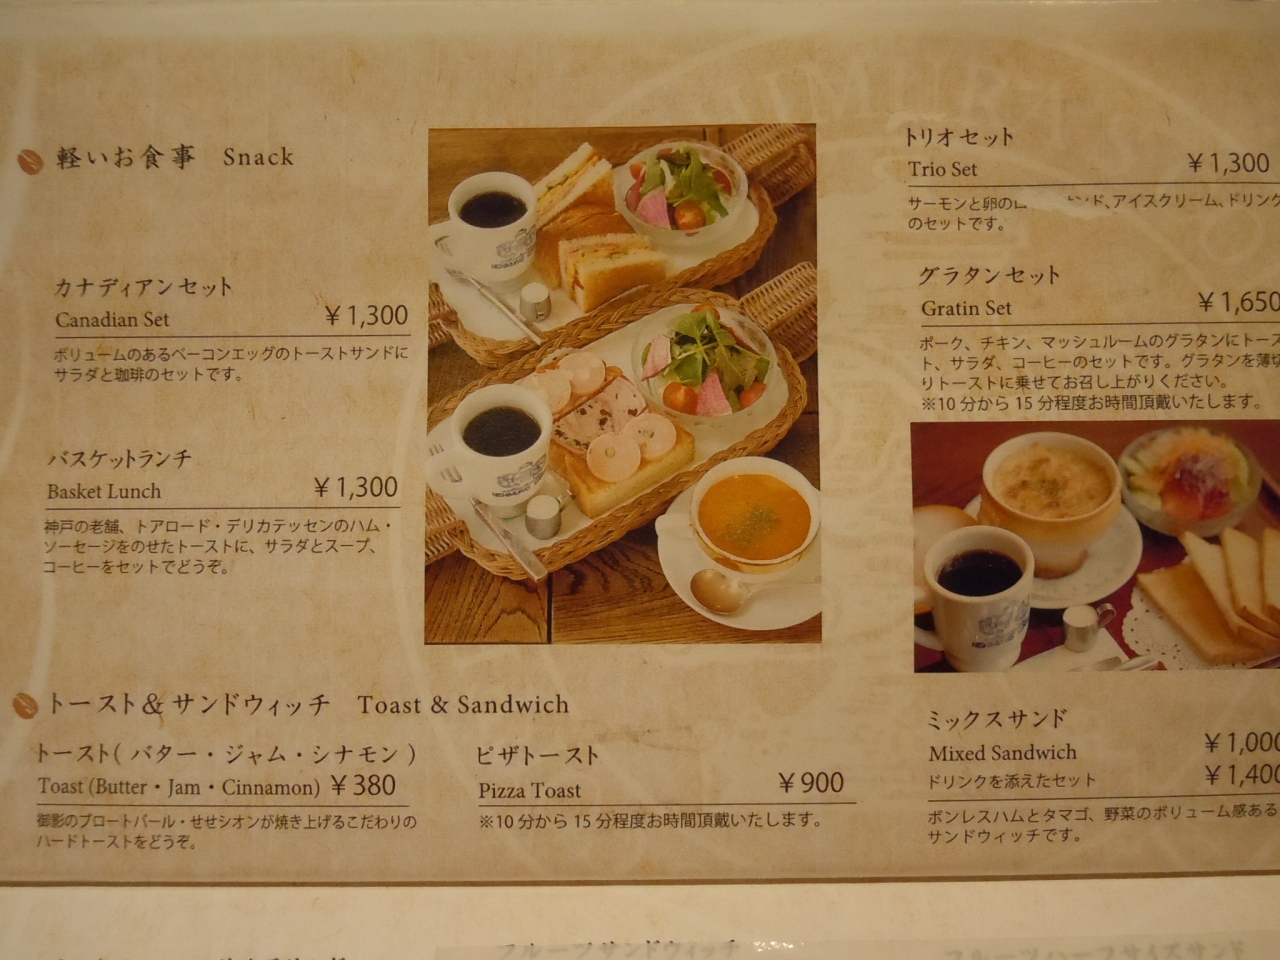 軽いお食事 Snack
カナディアンセット
Canadian Set ¥1,300
ボリュームのあるベーコンエッグのトーストサンドに
サラダと珈琲のセットです。
バスケットランチ
Basket Lunch ¥1,300
神戸の老舗、トアロード・デリカテッセンのハム・
ソーセージをのせたトーストに、サラダとスープ、
コーヒーをセットでどうぞ。
トリオセット
Trio Set ¥1,300
サーモンと卵の ンド、アイスクリーム、ドリンク
のセットです。
グラタンセット
Gratin Set ¥1,650
ポーク、チキン、マッシュルームのグラタンにトース
ト、サラダ、コーヒーのセットです。グラタンを薄切
りトーストに乗せてお召し上がりください。
※10分から15分程度お時間頂戴いたします。
トースト&サンドウィッチ Toast & Sandwich
トースト(バター・ジャム・シナモン)
Toast (Butter・Jam・Cinnamon) ¥380
御影のブロートバール・セセシオンが焼き上げるこだわりの
ハードトーストをどうぞ。
ピザトースト
Pizza Toast ¥900
※10分から15分程度お時間頂戴いたします。
ミックスサンド
Mixed Sandwich ¥1,000
ドリンクを添えたセット ¥1,400
ボンレスハムとタマゴ、野菜のボリューム感ある
サンドウィッチです。
フルーツサンドウィッチ
フルーツハーフサイズサンド